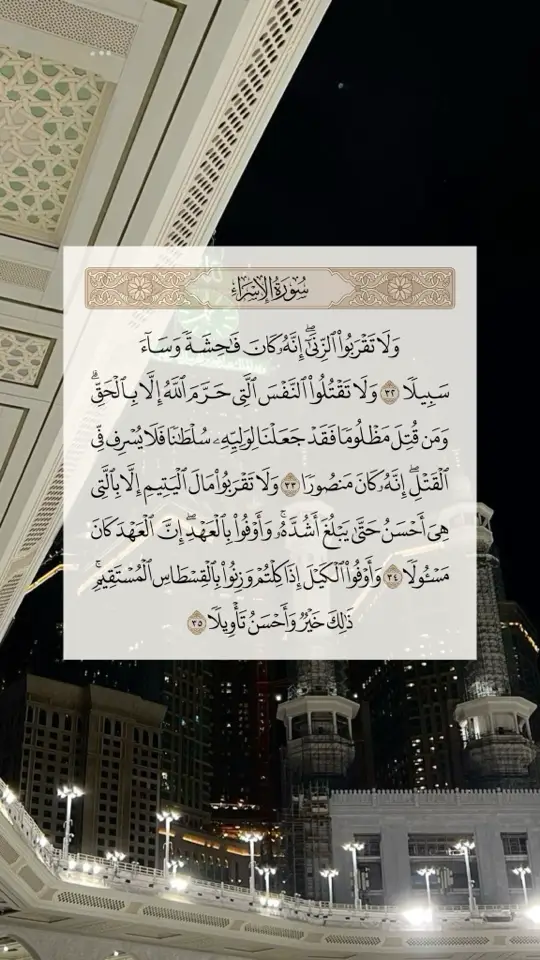 سُورَةُ الإِسْرَاءِ
وَلَا تَقْرَبُوا۟ ٱلزِّنَىٰٓ ۖ إِنَّهُۥ كَانَ فَـٰحِشَةً وَسَآءَ
سَبِيلًا ٣٢ وَلَا تَقْتُلُوا۟ ٱلنَّفْسَ ٱلَّتِى حَرَّمَ ٱللَّهُ إِلَّا بِٱلْحَقِّ ۗ
وَمَن قُتِلَ مَظْلُومًا فَقَدْ جَعَلْنَا لِوَلِيِّهِۦ سُلْطَـٰنًا فَلَا يُسْرِف فِّى
ٱلْقَتْلِ ۖ إِنَّهُۥ كَانَ مَنصُورًا ٣٣ وَلَا تَقْرَبُوا۟ مَالَ ٱلْيَتِيمِ إِلَّا بِٱلَّتِى
هِىَ أَحْسَنُ حَتَّىٰ يَبْلُغَ أَشُدَّهُۥ ۚ وَأَوْفُوا۟ بِٱلْعَهْدِ ۖ إِنَّ ٱلْعَهْدَ كَانَ
مَسْـُٔولًا ٣٤ وَأَوْفُوا۟ ٱلْكَيْلَ إِذَا كِلْتُمْ وَزِنُوا۟ بِٱلْقِسْطَاسِ ٱلْمُسْتَقِيمِ ۚ
ذَٰلِكَ خَيْرٌ وَأَحْسَنُ تَأْوِيلًا ٣٥